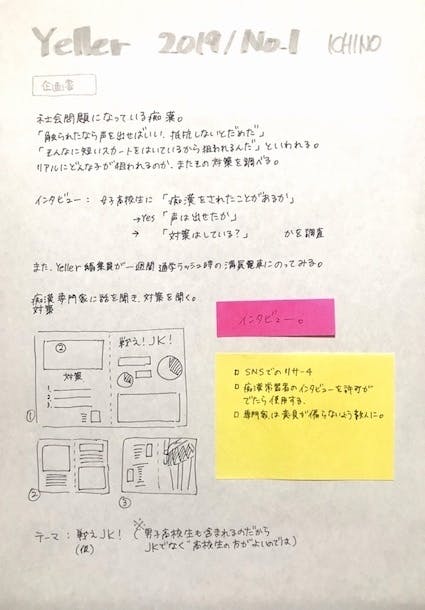 Yeller 2019/No.1 ICHINO
企画書
社会問題になっている痴漢。
「触られたなら声を出せばいい、抵抗しないとだめだ」
「そんなに短いスカートをはいているから狙われるんだ」といわれる。
リアルにどんな子が狙われるのか、またその対策を調べる。
インタビュー： 女子高校生に「痴漢をされたことがあるか」
→Yes「声は出せたか」
→ 「対策はしている？」 かを調査
また、Yeller編集員が一週間通学ラッシュ時の満員電車にのってみる。
痴漢専門家に話を聞き、対策を聞く。
対策
インタビュー。
②
対策
1.
2.
3.
戦え！JK！
①
②
③
□ SNSでのリサーチ
□ 痴漢常習者のインタビューを許可が
でたら使用する。
□ 専門家は意見が偏らないよう数人に。
テーマ：戦えJK！
(仮)
※(男子高校生も含まれるのだから
JKでなく"高校生の方がよいのでは)